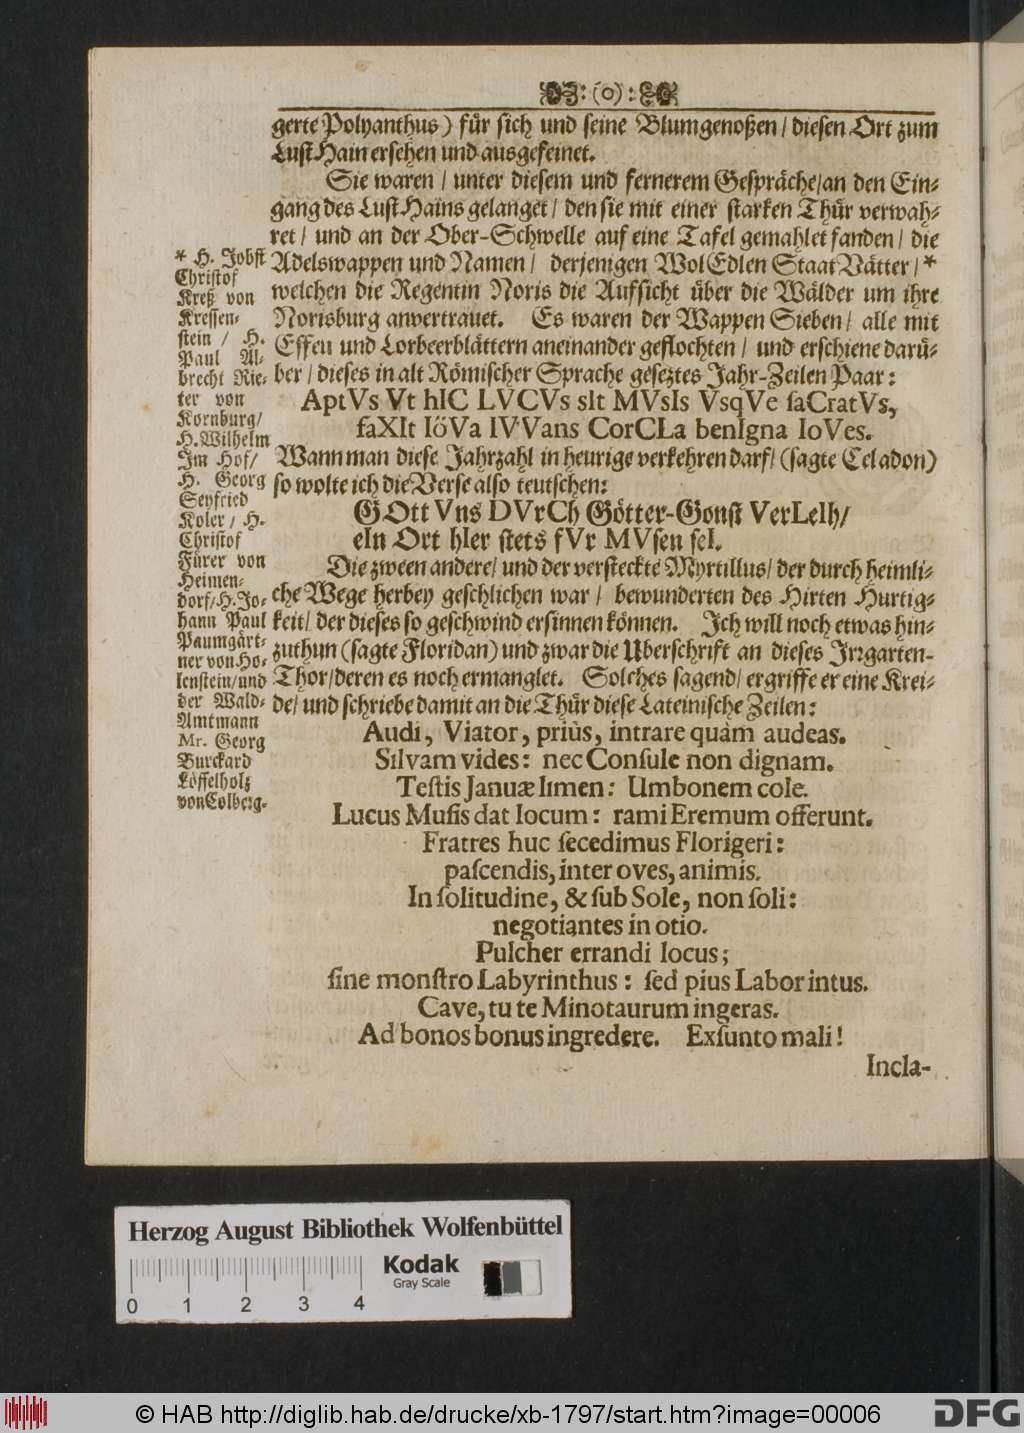 :(o):
gerte Polyanthus) für sich und seine Blumgenoßen/ diesen Ort zum
LustHain ersehen und ausgefeinet.
Sie waren / unter diesem und fernerem Gespräche/an den Ein-
gang des LustHains gelanget/ den sie mit einer starken Thür verwah-
ret/ und an der Ober-Schwelle auf eine Tafel gemahlet fanden/ die
Adelswappen und Namen/ derjenigen WolEdlen StaatVätter/*
welchen die Regentin Noris die Aufsicht über die Wälder um ihre
Norisburg anvertrauet. Es waren der Wappen Sieben/ alle mit
Effeu und Lorbeerblättern aneinander geflochten/ und erschiene darü-
ber/ dieses in alt Römischer Sprache geseztes Jahr-Zeilen Paar:
AptVs Vt hIC LVCVs sIt MVsIs VsqVe ſaCratVs,
faXIt IöVa IVVans CorCLa benIgna IoVes.
Wann man diese Jahrzahl in heurige verkehren darf/ (sagte Celadon)
so wolte ich die Verse also teutschen:
GOtt Vns DVrCh Götter-Gonst VerLeIh/
eIn Ort hIer stets fVr MVsen seI.
Die zween andere/ und der versteckte Myrtillus/ der durch heimli-
che Wege herbey geschlichen war/ bewunderten des Hirten Hurtig-
keit/ der dieses so geschwind ersinnen können. Ich will noch etwas hin-
zuthun (sagte Floridan) und zwar die Uberschrift an dieses Irrgarten-
Thor/deren es noch ermanglet. Solches sagend/ ergriffe er eine Krei-
de/ und schriebe damit an die Thür diese Lateinische Zeilen:
Audi, Viator, priùs, intrare quàm audeas.
Silvam vides: nec Conſule non dignam.
Teſtis Januæ limen: Umbonem cole.
Lucus Muſis dat locum: rami Eremum offerunt.
Fratres huc ſecedimus Florigeri:
paſcendis, inter oves, animis.
In ſolitudine, & ſub Sole, non ſoli:
negotiantes in otio.
Pulcher errandi locus;
ſine monſtro Labyrinthus: ſed pius Labor intus.
Cave, tu te Minotaurum ingeras.
Ad bonos bonus ingredere. Exſunto mali!
Incla-
* H. Jobst
Christof
Kreß von
Kressen-
stein / H.
Paul Al-
brecht Rie-
ter von
Kornburg/
H. Wilhelm
Im Hof/
H. Georg
Seyfried
Koler/ H.
Christof
Fürer von
Heimen-
dorf/H. Jo-
hann Paul
Paumgärt-
ner von Ho-
lenstein/und
der Wald-
Amtmann
Mr. Georg
Burckard
Löffelholz
von Colberg.
Herzog August Bibliothek Wolfenbüttel
Kodak
Gray Scale
0 1 2 3 4
© HAB http://diglib.hab.de/drucke/xb-1797/start.htm?image=00006
DFG